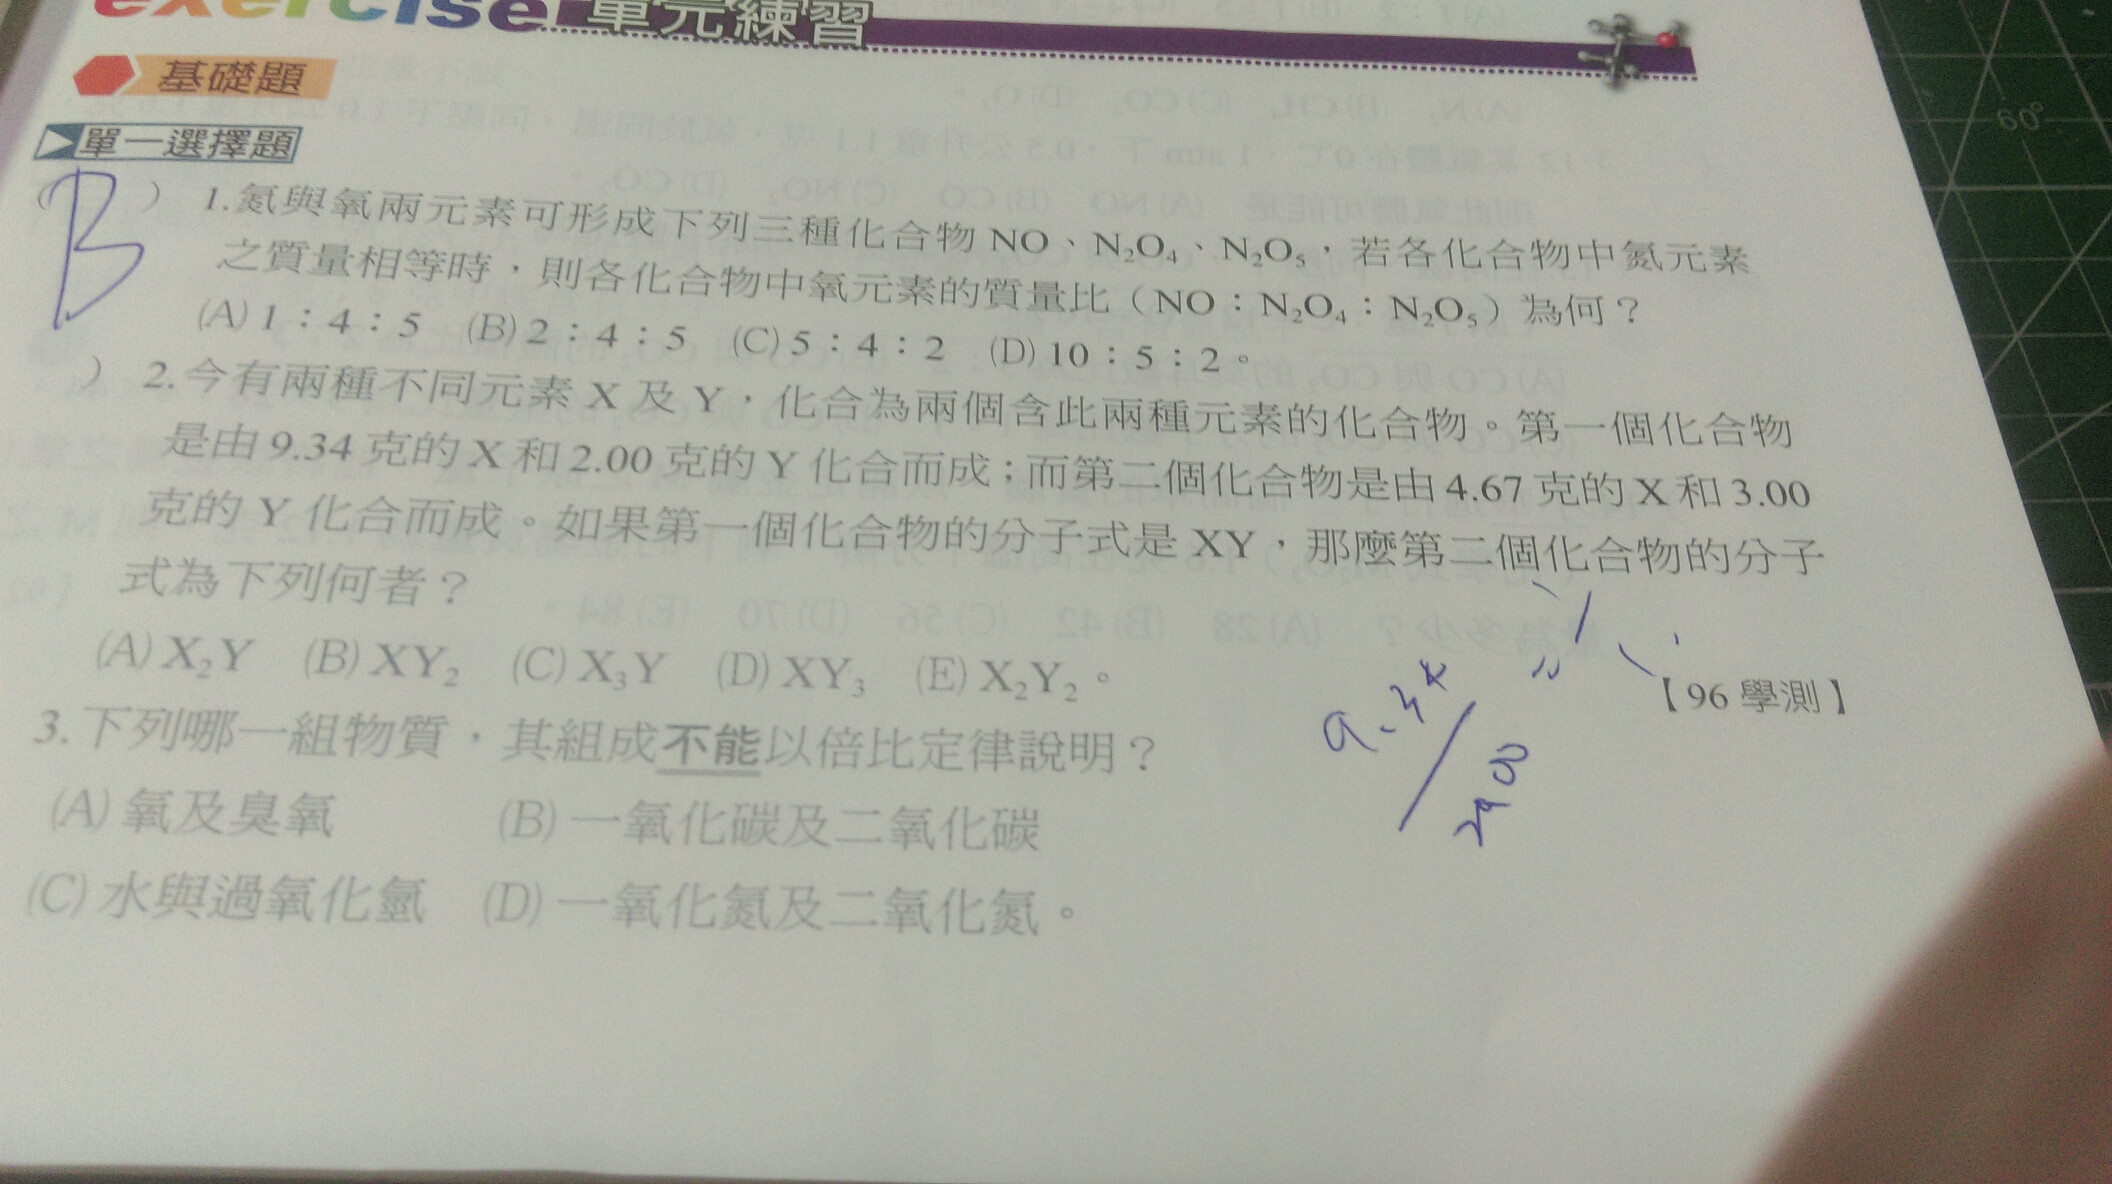 exercise 單元練習
基礎題
單一選擇題
(B) 1.氮與氧兩元素可形成下列三種化合物 NO、N₂O₄、N₂O₅,若各化合物中氮元素
之質量相等時,則各化合物中氧元素的質量比(NO:N₂O₄:N₂O₅)為何?
(A) 1:4:5 (B) 2:4:5 (C) 5:4:2 (D) 10:5:2。
) 2.今有兩種不同元素 X 及 Y,化合為兩個含此兩種元素的化合物。第一個化合物
是由 9.34 克的 X 和 2.00 克的 Y 化合而成;而第二個化合物是由 4.67 克的 X 和 3.00
克的 Y 化合而成。如果第一個化合物的分子式是 XY,那麼第二個化合物的分子
式為下列何者?
(A) X₂Y (B) XY₂ (C) X₃Y (D) XY₃ (E) X₂Y₂。
【96 學測】
9.34
2.00
3.下列哪一組物質,其組成不能以倍比定律說明?
(A) 氧及臭氧 (B) 一氧化碳及二氧化碳
(C) 水與過氧化氫 (D) 一氧化氮及二氧化氮。
60°